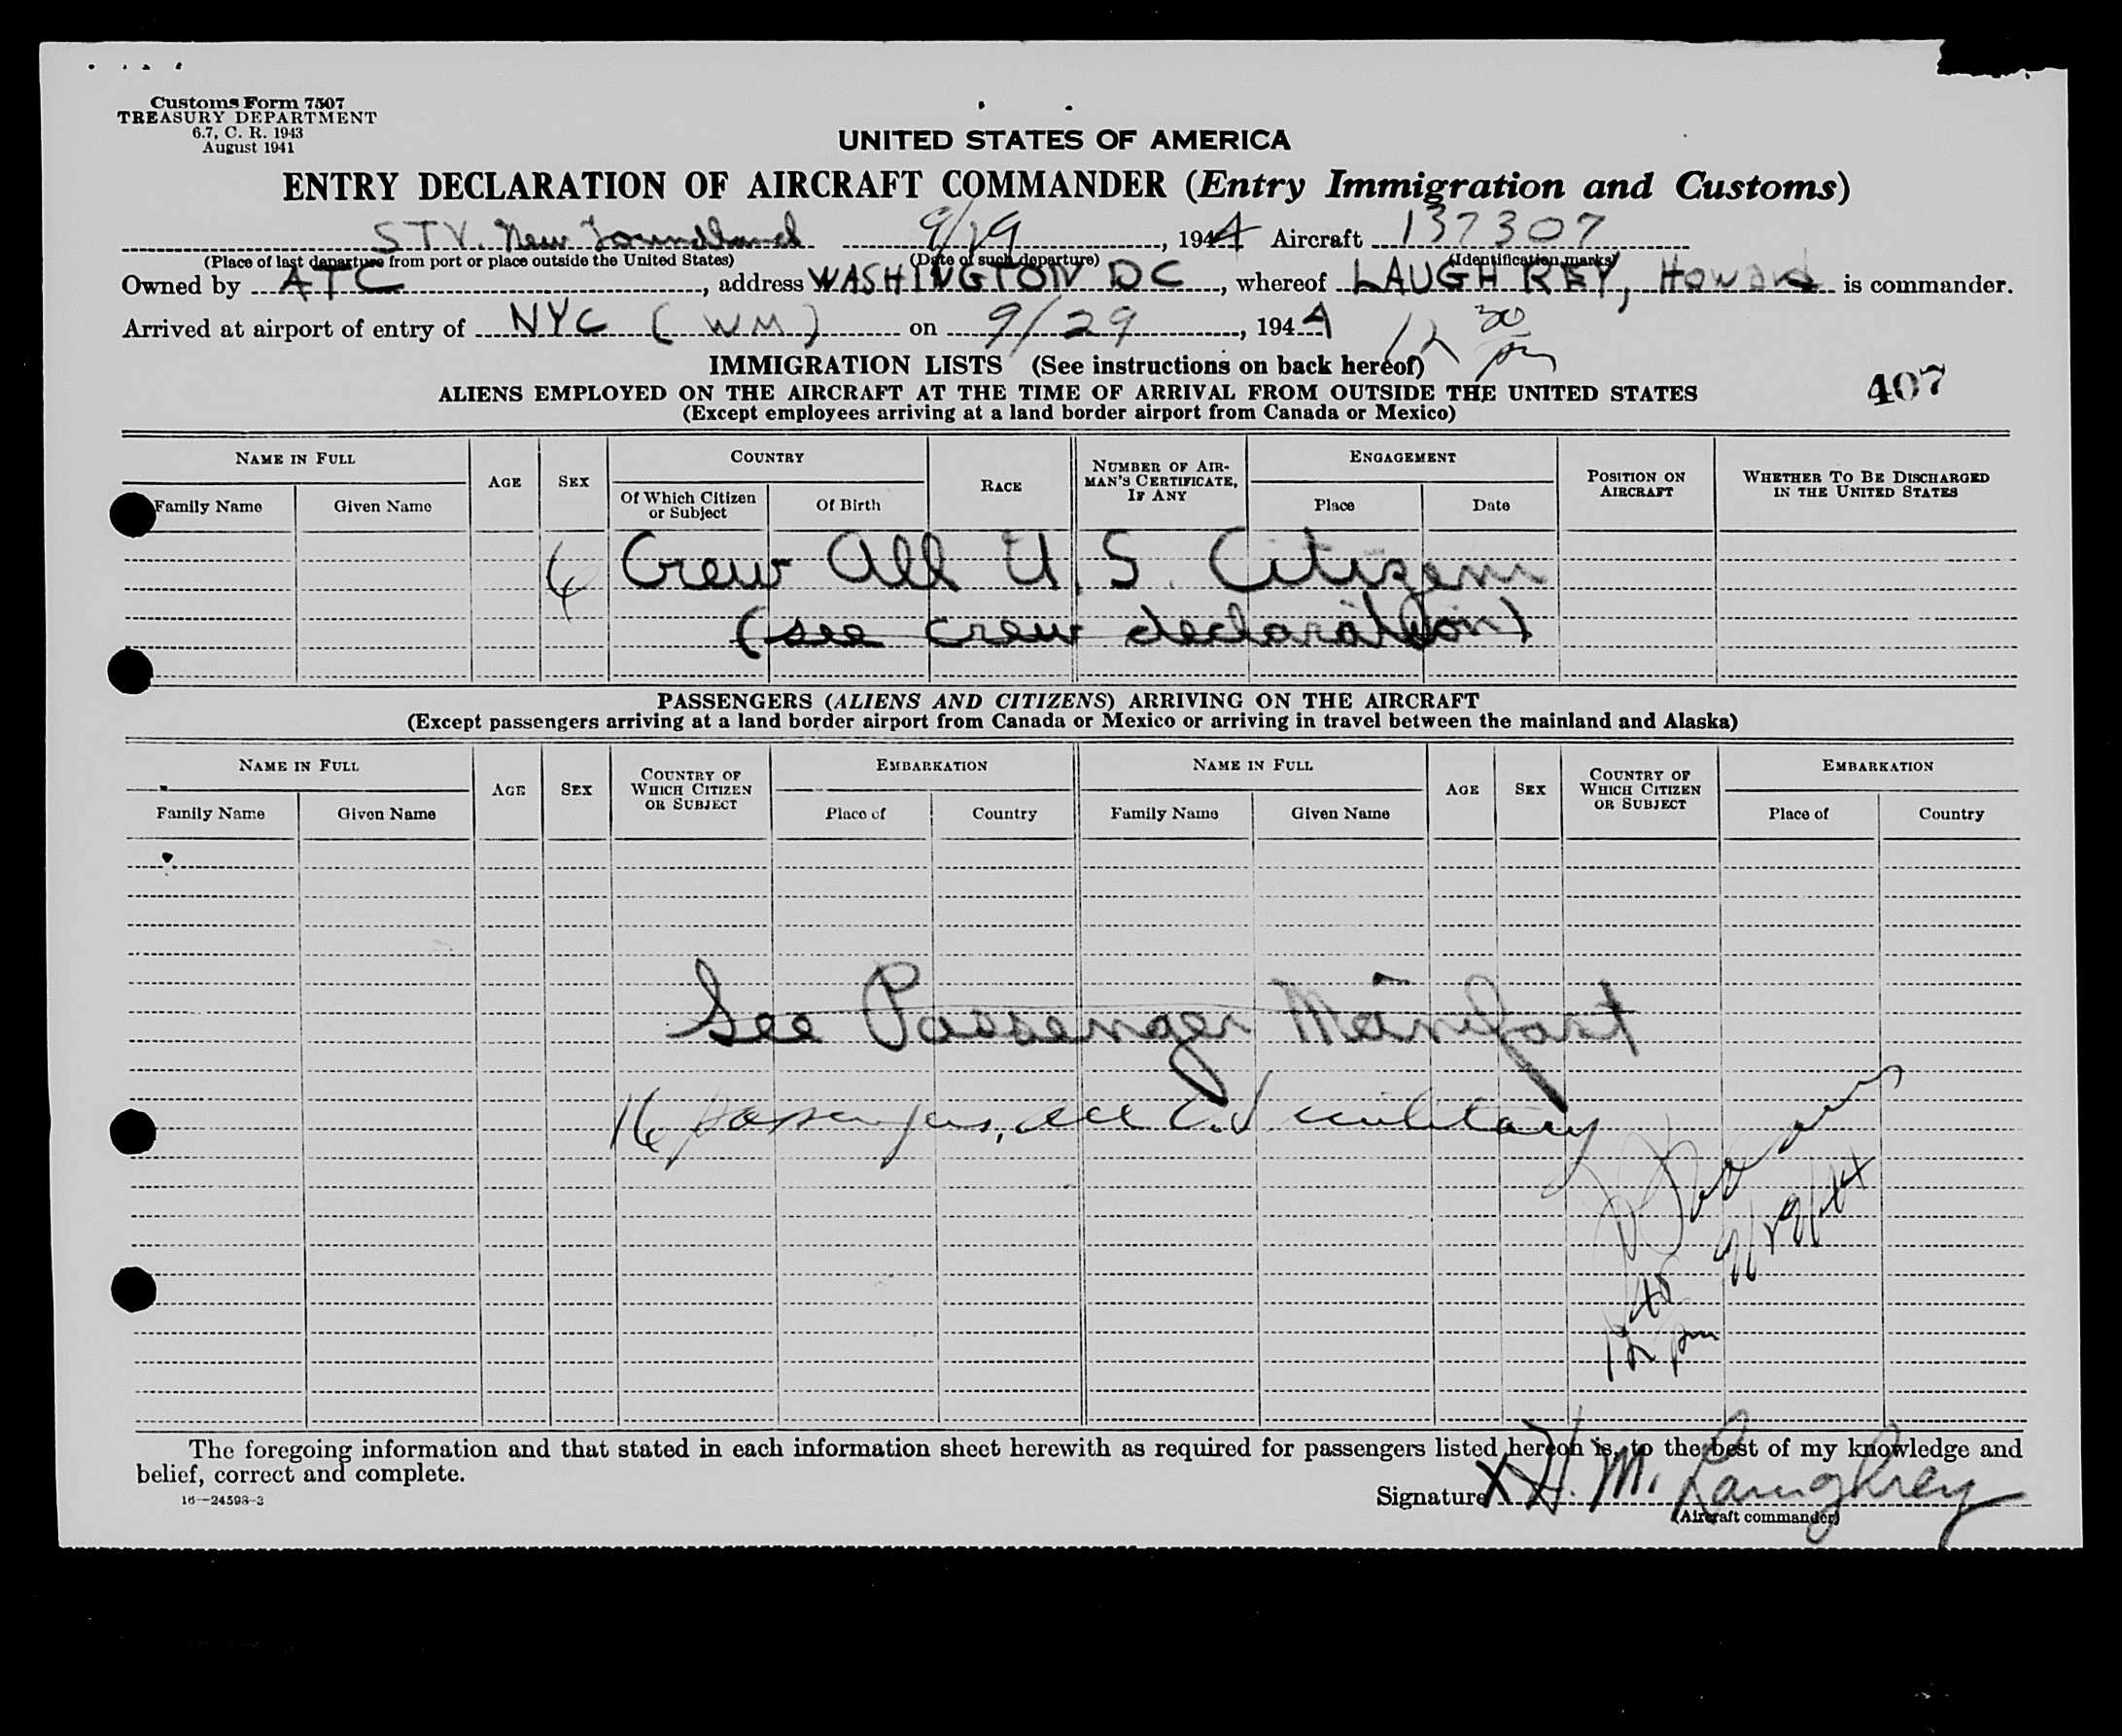 Customs Form 7507
TREASURY DEPARTMENT
6.7, C. R. 1943
August 1941
UNITED STATES OF AMERICA
ENTRY DECLARATION OF AIRCRAFT COMMANDER (Entry Immigration and Customs)
STV. New Foundland 9/29, 1944 Aircraft 137307
(Place of last departure from port or place outside the United States) (Date of such departure) (Identification marks)
Owned by ATC, address WASHINGTON DC, whereof LAUGHREY, Howard is commander.
Arrived at airport of entry of NYC (WM) on 9/29, 1944 12 30 pm
IMMIGRATION LISTS (See instructions on back hereof)
ALIENS EMPLOYED ON THE AIRCRAFT AT THE TIME OF ARRIVAL FROM OUTSIDE THE UNITED STATES
407
(Except employees arriving at a land border airport from Canada or Mexico)
NAME IN FULL AGE SEX COUNTRY RACE NUMBER OF AIRMAN'S CERTIFICATE, IF ANY ENGAGEMENT POSITION ON AIRCRAFT WHETHER TO BE DISCHARGED IN THE UNITED STATES
Family Name Given Name Of Which Citizen or Subject Of Birth Place Date
6 Crew All U.S. Citizens
(see crew declaration)
PASSENGERS (ALIENS AND CITIZENS) ARRIVING ON THE AIRCRAFT
(Except passengers arriving at a land border airport from Canada or Mexico or arriving in travel between the mainland and Alaska)
NAME IN FULL AGE SEX COUNTRY OF WHICH CITIZEN OR SUBJECT EMBARKATION NAME IN FULL AGE SEX COUNTRY OF WHICH CITIZEN OR SUBJECT EMBARKATION
Family Name Given Name Place of Country Family Name Given Name Place of Country
See Passenger Manifast
16 passengers, all U.S. military
9/29/44
12 45 pm
The foregoing information and that stated in each information sheet herewith as required for passengers listed hereon is, to the best of my knowledge and
belief, correct and complete.
16—24598-3
Signature X H. M. Laughrey
(Aircraft commander)